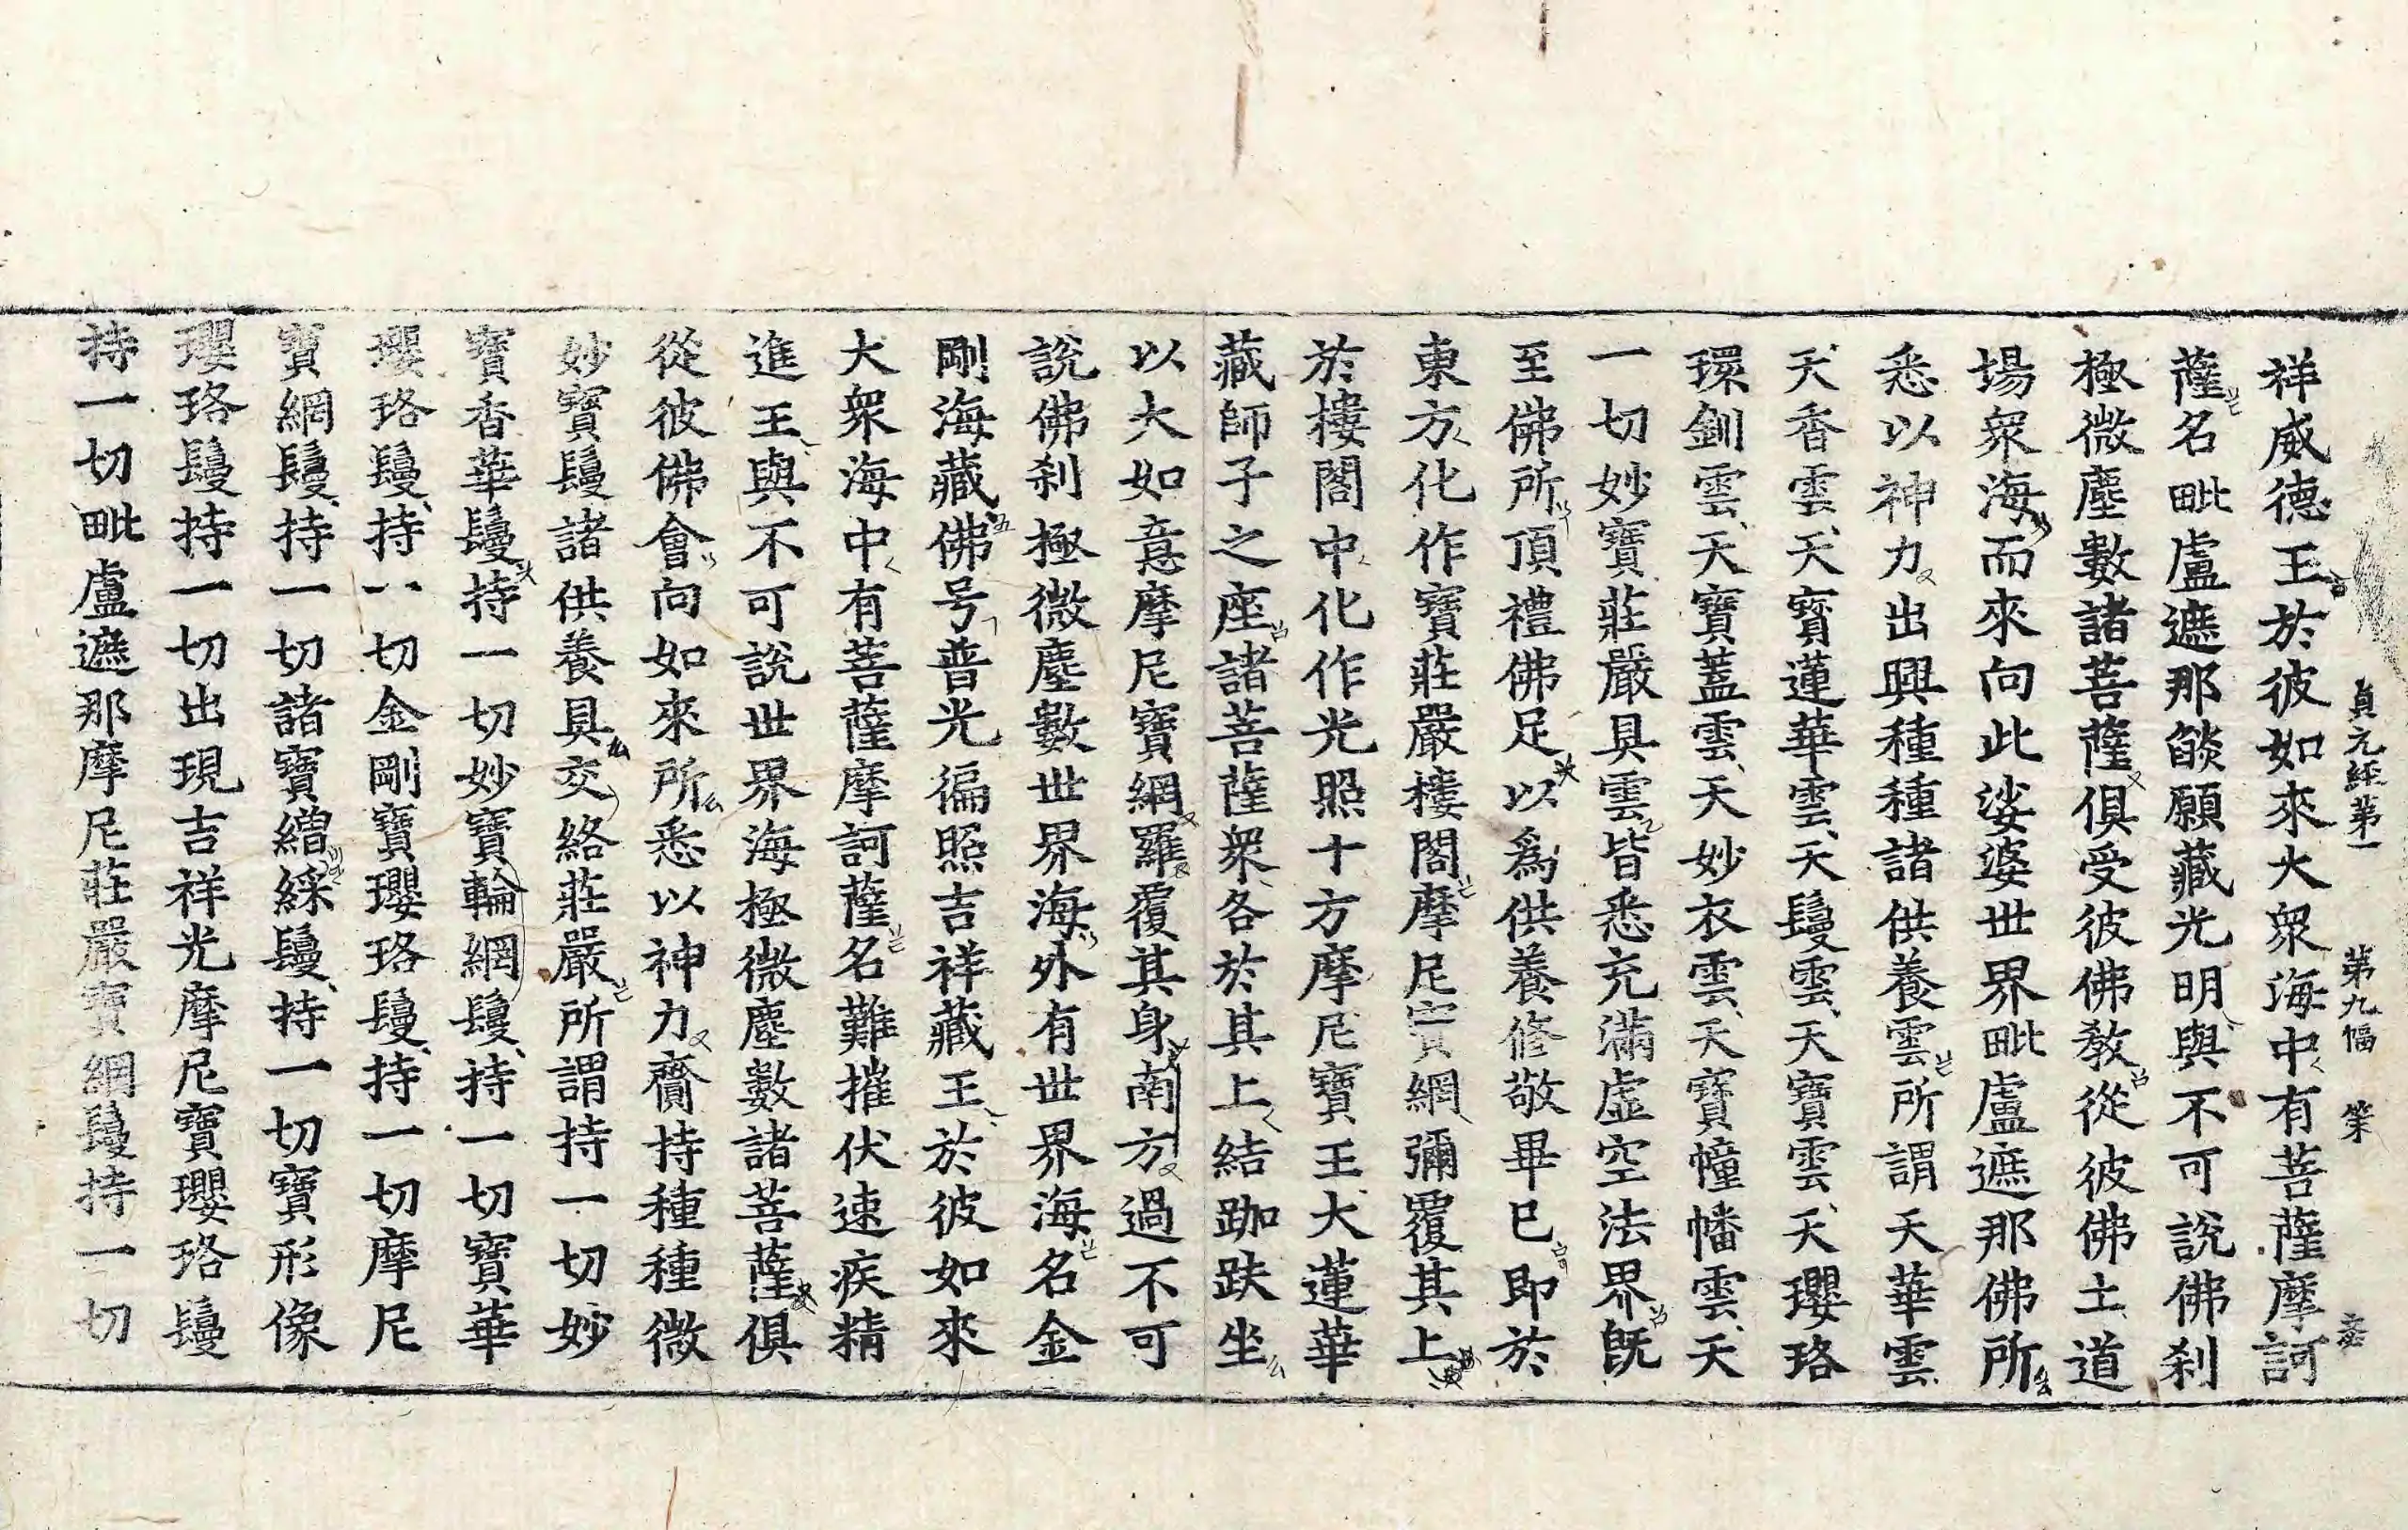 貞元經第一 第九幅 策
祥威德王於彼如來大衆海中有菩薩摩訶
薩名毗盧遮那餤願藏光明與不可說佛刹
極微塵數諸菩薩俱受彼佛教從彼佛土道
場衆海而來向此娑婆世界毗盧遮那佛所
悉以神力出興種種諸供養雲所謂天華雲
天香雲天寶蓮華雲天鬘雲天寶雲天瓔珞
環釧雲天寶蓋雲天妙衣雲天寶幢幡雲天
一切妙寶莊嚴具雲皆悉充滿虛空法界旣
至佛所頂禮佛足以爲供養修敬畢已即於
東方化作寶莊嚴樓閣摩尼寶網彌覆其上
於樓閣中化作光照十方摩尼寶王大蓮華
藏師子之座諸菩薩衆各於其上結跏趺坐
以大如意摩尼寶網羅覆其身南方過不可
說佛刹極微塵數世界海外有世界海名金
剛海藏佛号普光徧照吉祥藏王於彼如來
大衆海中有菩薩摩訶薩名難摧伏速疾精
進王與不可說世界海極微塵數諸菩薩俱
從彼佛會向如來所悉以神力齎持種種微
妙寶鬘諸供養具交絡莊嚴所謂持一切妙
寶香華鬘持一切妙寶輪網鬘持一切寶華
瓔珞鬘持一切金剛寶瓔珞鬘持一切摩尼
寶網鬘持一切諸寶繒綵鬘持一切寶形像
瓔珞鬘持一切出現吉祥光摩尼寶瓔珞鬘
持一切毗盧遮那摩尼莊嚴寶網鬘持一切